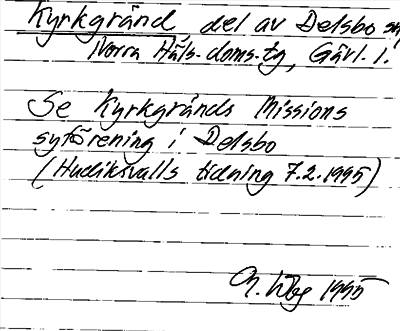 Kyrkgränd, del av Delsbo sn
Norra Häls. doms.tg, Gävl. l.
Se Kyrkgränds Missions
syförening i Delsbo
(Hudiksvalls tidning 7.2.1995)
1995